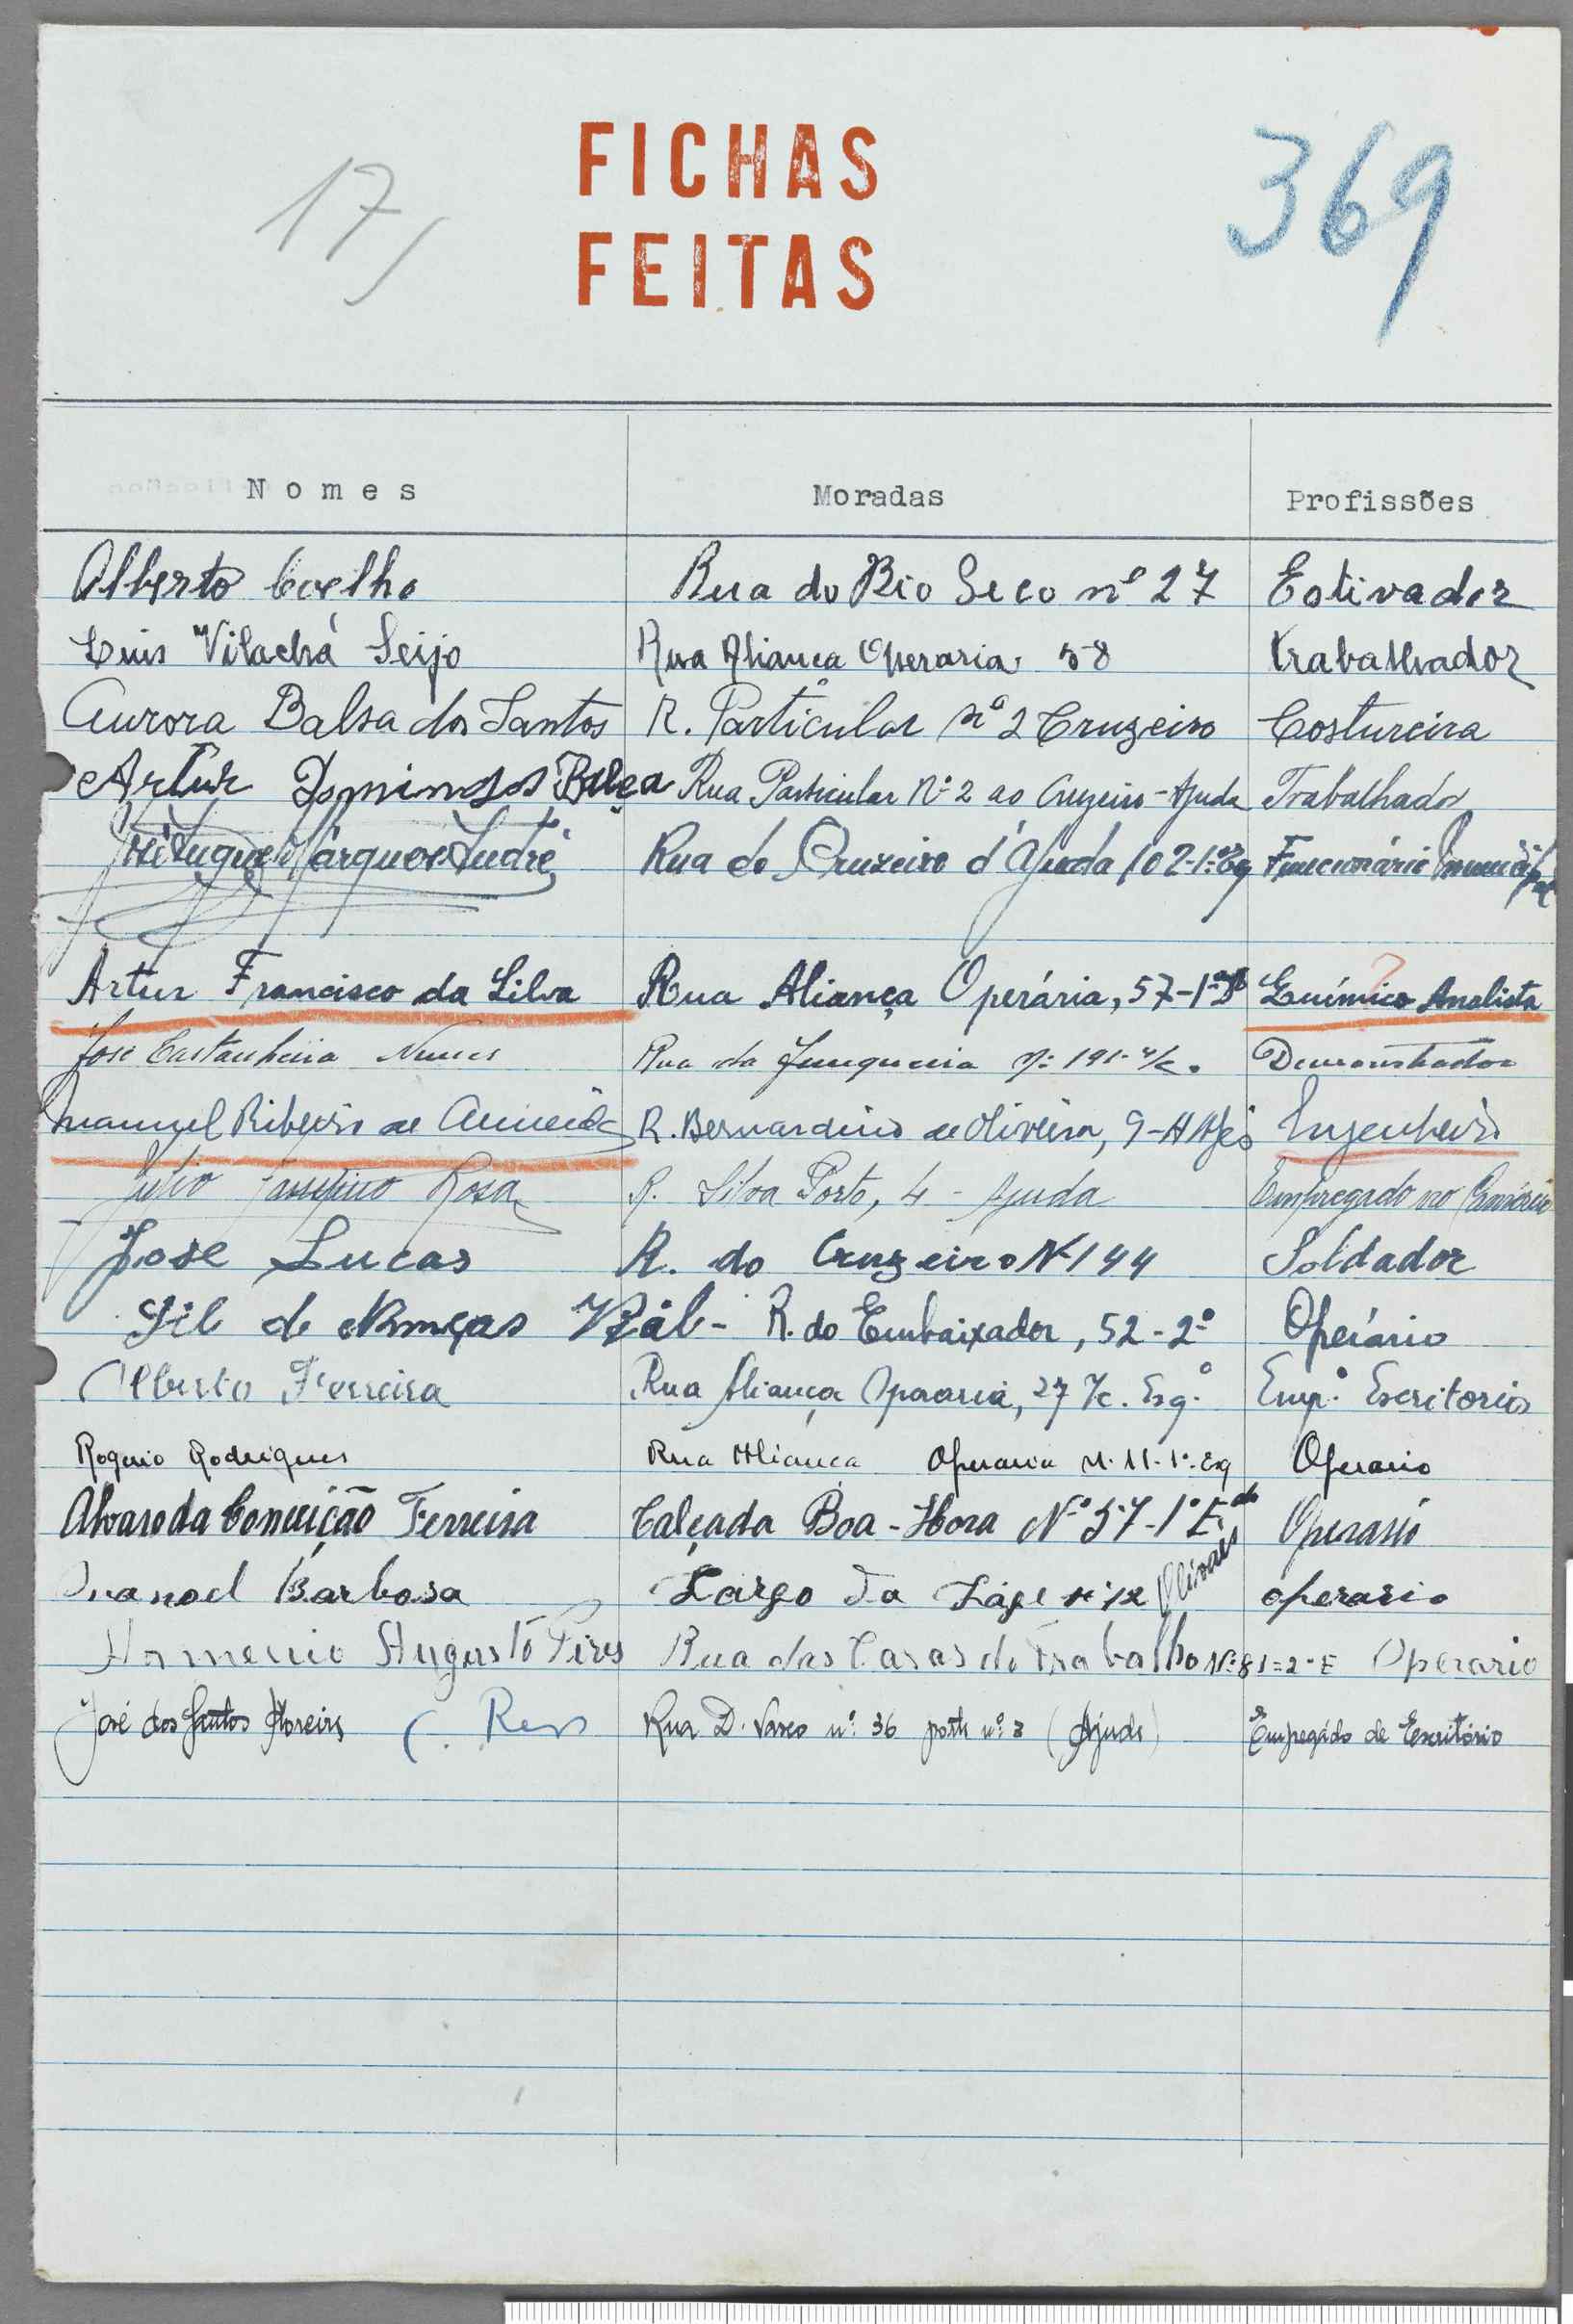 17
FICHAS
FEITAS
369
Nomes Moradas Profissões
Alberto Coelho Rua do Rio Seco nº 27 Estivador
Luis Vilachá Seijo Rua Aliança Operaria 58 trabalhador
Aurora Balsa dos Santos R. Particular nº 2 Cruzeiro Costureira
Artur Domingos Balça Rua Particular Nº 2 ao Cruzeiro - Ajuda Trabalhador
Marques Rua do Cruzeiro d'Ajuda 102-1º Esq Funcionário Municipal
Artur Francisco da Silva Rua Aliança Operária, 57-1º D Químico Analista
?
José Castanheira Nunes Rua da Junqueira nº 191-r/c. Demonstrador
Manuel Ribeiro de Almeida R. Bernardino de Oliveira, 9-A Algés Engenheiro
Julio Rosa R. Silva Porto, 4 - Ajuda Empregado no Comércio
Jose Lucas R. do Cruzeiro Nº 144 Soldador
Gil de Vidal - R. do Embaixador, 52-2º Operário
Alberto Ferreira Rua Aliança Operaria, 27 r/c. Esqº Empº Escritorio
Rogerio Rodrigues Rua Aliança Operaria N. 11-1º. Esq Operario
Alvaro da Conceição Ferreira Calçada Boa-Hora Nº 57-1º Operario
Manoel Barbosa Largo da Lage nº 12 Olivais operario
Armenio Augusto Pires Rua das Casas de Trabalho Nº 81=2º E Operario
José dos Santos Moreira Rua D. Vasco nº 36 porta nº 3 (Ajuda) Empregado de Escritório